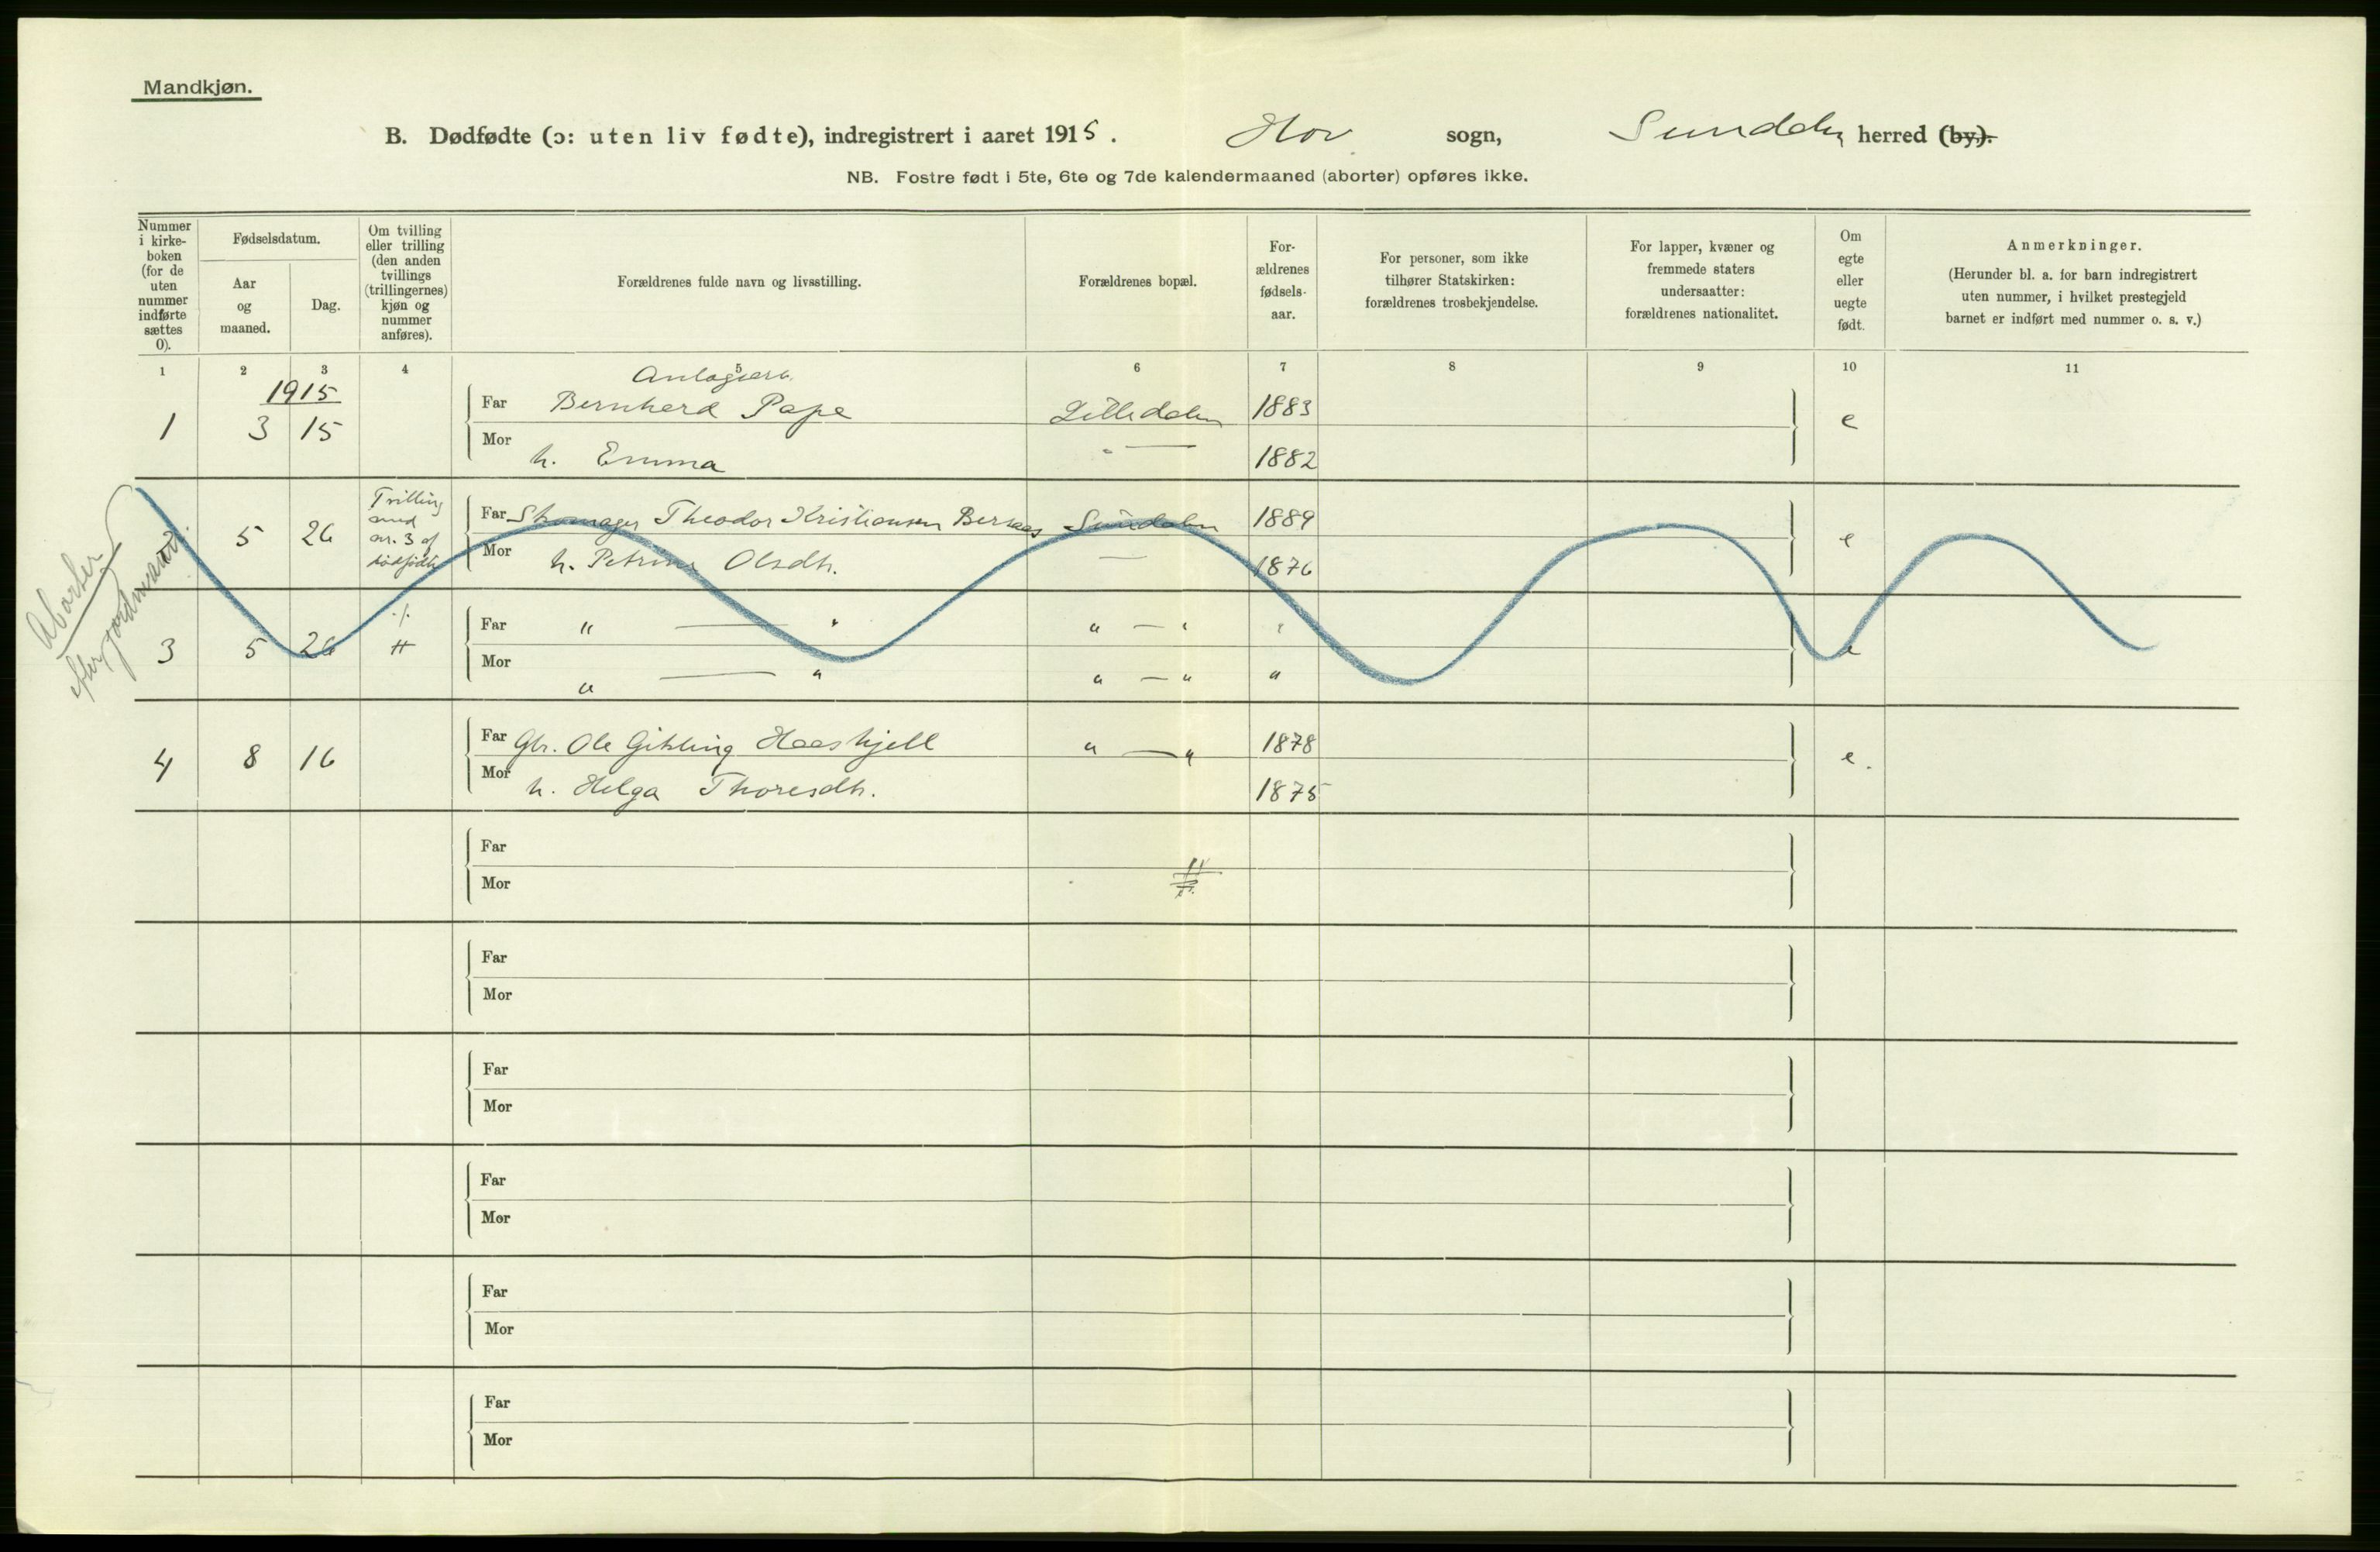 Mandkjøn.
B. Dødfødte (ɔ: uten liv fødte), indregistrert i aaret 1915. Hov sogn, Sunddalen herred (by).
NB. Fostre født i 5te, 6te og 7de kalendermaaned (aborter) opføres ikke.
Nummer
i kirke-
boken
(for de
uten
nummer
indførte
sættes
0).
Fødselsdatum.
Aar
og
maaned.
Dag.
Om tvilling
eller trilling
(den anden
tvillings
(trillingernes)
kjøn og
nummer
anføres).
Forældrenes fulde navn og livsstilling.
Forældrenes bopæl.
For-
ældrenes
fødsels-
aar.
For personer, som ikke
tilhører Statskirken:
forældrenes trosbekjendelse.
For lapper, kvæner og
fremmede staters
undersaatter:
forældrenes nationalitet.
Om
egte
eller
uegte
født.
Anmerkninger.
(Herunder bl. a. for barn indregistrert
uten nummer, i hvilket prestegjeld
barnet er indført med nummer o. s. v.)
1 2 3 4 5 6 7 8 9 10 11
1915
Anlagsarb.
1 3 15 Far Bernhard Pape Lilledalen 1883 e
Mor h. Emma " — 1882
Aborter
efter jordmoren
Trilling
med
nr. 3 af
dødfødte
5 26 Far Skomager Theodor Kristiansen Sundalen 1889 e
Mor h. Petrine Olsdtr. — 1876
3 5 26 Far " — " " — " " e
Mor " — " " — " "
4 8 16 Far Gbr. Ole Gikling Haaskjell " — " 1878 e.
Mor h. Helga Thoresdtr. 1875
Far
Mor
Far
Mor
Far
Mor
Far
Mor
Far
Mor
Far
Mor